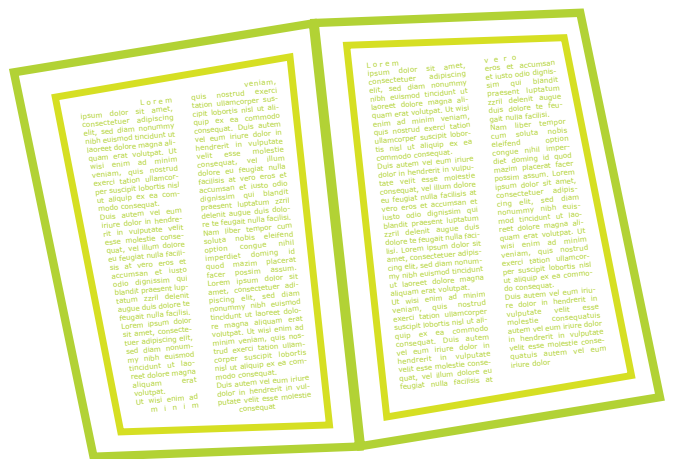 Lorem
ipsum dolor sit amet,
consectetuer adipiscing
elit, sed diam nonummy
nibh euismod tincidunt ut
laoreet dolore magna ali-
quam erat volutpat. Ut
wisi enim ad minim
veniam, quis nostrud
exerci tation ullamcor-
per suscipit lobortis nisl
ut aliquip ex ea com-
modo consequat.
Duis autem vel eum
iriure dolor in hendre-
rit in vulputate velit
esse molestie conse-
quat, vel illum dolore
eu feugiat nulla facili-
sis at vero eros et
accumsan et iusto
odio dignissim qui
blandit praesent lup-
tatum zzril delenit
augue duis dolore te
feugait nulla facilisi.
Lorem ipsum dolor
sit amet, consecte-
tuer adipiscing elit,
sed diam nonum-
my nibh euismod
tincidunt ut lao-
reet dolore magna
aliquam erat
volutpat.
Ut wisi enim ad
minim
veniam,
quis nostrud exerci
tation ullamcorper sus-
cipit lobortis nisl ut ali-
quip ex ea commodo
consequat. Duis autem
vel eum iriure dolor in
hendrerit in vulputate
velit esse molestie
consequat, vel illum
dolore eu feugiat nulla
facilisis at vero eros et
accumsan et iusto odio
dignissim qui blandit
praesent luptatum zzril
delenit augue duis dolo-
re te feugait nulla facilisi.
Nam liber tempor cum
soluta nobis eleifend
option congue nihil
imperdiet doming id
quod mazim placerat
facer possim assum.
Lorem ipsum dolor sit
amet, consectetuer adi-
piscing elit, sed diam
nonummy nibh euismod
tincidunt ut laoreet dolo-
re magna aliquam erat
volutpat. Ut wisi enim ad
minim veniam, quis nos-
trud exerci tation ullam-
corper suscipit lobortis
nisl ut aliquip ex ea com-
modo consequat.
Duis autem vel eum iriure
dolor in hendrerit in vul-
putate velit esse molestie
consequat
Lorem
ipsum dolor sit amet,
consectetuer adipiscing
elit, sed diam nonummy
nibh euismod tincidunt ut
laoreet dolore magna ali-
quam erat volutpat. Ut wisi
enim ad minim veniam,
quis nostrud exerci tation
ullamcorper suscipit lobor-
tis nisl ut aliquip ex ea
commodo consequat.
Duis autem vel eum iriure
dolor in hendrerit in vulpu-
tate velit esse molestie
consequat, vel illum dolore
eu feugiat nulla facilisis at
vero eros et accumsan et
iusto odio dignissim qui
blandit praesent luptatum
zzril delenit augue duis
dolore te feugait nulla faci-
lisi. Lorem ipsum dolor sit
amet, consectetuer adipis-
cing elit, sed diam nonum-
my nibh euismod tincidunt
ut laoreet dolore magna
aliquam erat volutpat.
Ut wisi enim ad minim
veniam, quis nostrud
exerci tation ullamcorper
suscipit lobortis nisl ut ali-
quip ex ea commodo
consequat. Duis autem
vel eum iriure dolor in
hendrerit in vulputate
velit esse molestie conse-
quat, vel illum dolore eu
feugiat nulla facilisis at
vero
eros et accumsan
et iusto odio dignis-
sim qui blandit
praesent luptatum
zzril delenit augue
duis dolore te feu-
gait nulla facilisi.
Nam liber tempor
cum soluta nobis
eleifend option
congue nihil imper-
diet doming id quod
mazim placerat facer
possim assum. Lorem
ipsum dolor sit amet,
consectetuer adipis-
cing elit, sed diam
nonummy nibh euis-
mod tincidunt ut lao-
reet dolore magna ali-
quam erat volutpat. Ut
wisi enim ad minim
veniam, quis nostrud
exerci tation ullamcor-
per suscipit lobortis nisl
ut aliquip ex ea commo-
do consequat.
Duis autem vel eum iriu-
re dolor in hendrerit in
vulputate velit esse
molestie consequatuis
autem vel eum iriure dolor
in hendrerit in vulputate
velit esse molestie conse-
quatuis autem vel eum
iriure dolor